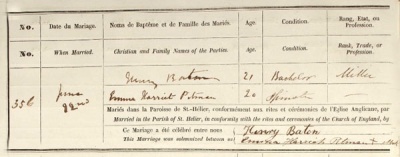 No. Date du Mariage. Noms de Baptême et de Famille des Mariés. Age. Condition. Rang, Etat, ou Profession.
No. When Married. Christian and Family Names of the Parties. Age. Condition. Rank, Trade, or Profession.
Henry Baton 21 Bachelor Miller
356 June 22nd Emma Harriet Pitman 20 Spinster —
Mariés dans la Paroisse de St.-Hélier, conformément aux rites et cérémonies de l'Eglise Anglicane, par
Married in the Parish of St. Helier, in conformity with the rites and ceremonies of the Church of England, by
Ce Mariage a été célébré entre nous Henry Baton
This Marriage was solemnized between us Emma Harriet Pitman